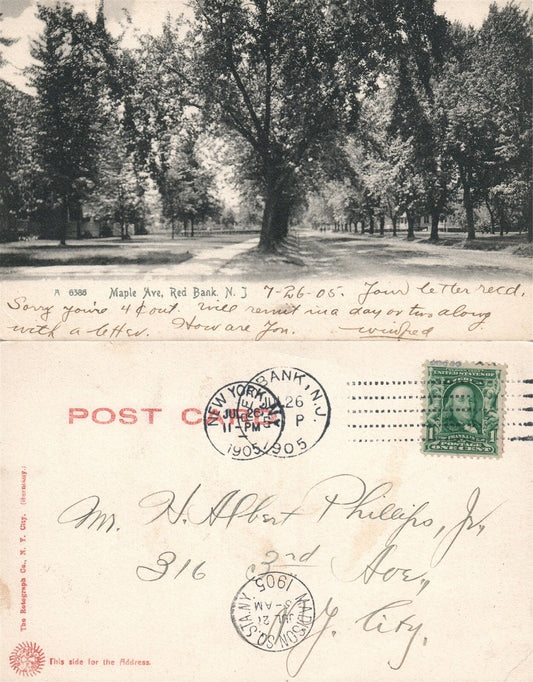 A 6386 Maple Ave, Red Bank. N. J 7-26-05. Your letter recd.
Sorry you're 4¢ out. Will remit in a day or two along
with a letter. How are you. Winifred
POST CARD
BANK, N.J.
26
P
1905
NEW YORK, N.Y.
JUL 26
11-PM
1905
UNITED STATES OF
FRANKLIN
POSTAGE
1 ONE CENT 1
Mr. H. Albert Phillips, Jr.,
316 3rd Ave.,
N.Y. City.
MADISON SQ. STA. N.Y.
JUL 27
5-AM
1905
The Rotograph Co., N. Y. City. (Germany.)
This side for the Address.